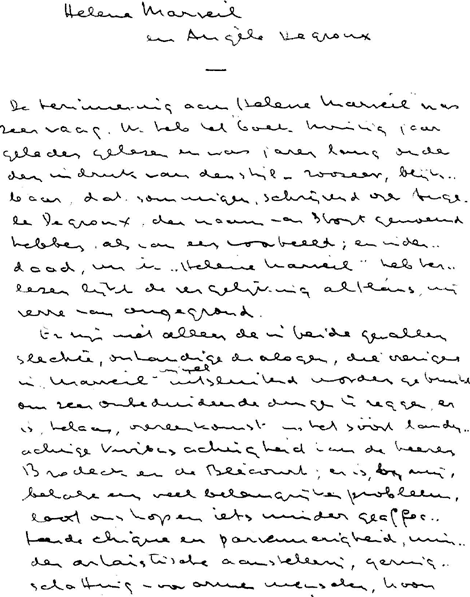 Helene Marveil
en Angèle Degroux
—
De herinnering aan "Helene Marveil" was
zeer vaag. Ik heb het boek twintig jaar
geleden gelezen en was jaren lang onder
den indruk van den stijl – zoozeer, blijk..
baar, dat sommigen, schrijvend over Angè-
le Degroux, den naam van genoemd
hebben als van een voorbeeld; en inder..
daad, nu ik "Helene Marveil" heb her..
lezen lijkt de vergelijking althans mij
verre van ongegrond.
Er zijn niet alleen de in beide gevallen
slechte, onhandige dialogen, die overigens
in "Marveil" niet uitsluitend worden gebruikt
om zeer onbeduidende dingen te zeggen, er
is, helaas, overeenkomst in het soort
achtige achtigheid van de heeren
en de ; er is, mij,
behalve een veel belangrijker probleem,
laat ons hopen iets minder geaffec..
teerde chique en parvenuerigheid, min..
der archaïstische aanstellerij, gering..
schatting voor arme menschen, hoon